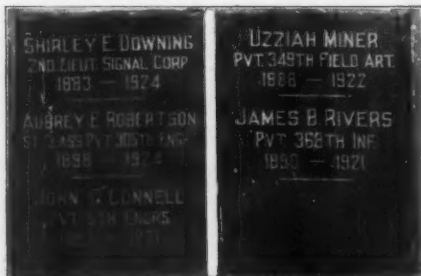 SHIRLEY E. DOWNING
2ND. LIEUT. SIGNAL CORP
1893 — 1924
AUBREY E. ROBERTSON
1ST CLASS PVT. 305TH ENG.
1898 —
JOHN CONNELL
PVT ENGRS
UZZIAH MINER
PVT. 349TH FIELD ART.
1888 — 1922
JAMES B RIVERS
PVT. 368TH INF.
1890 — 1921